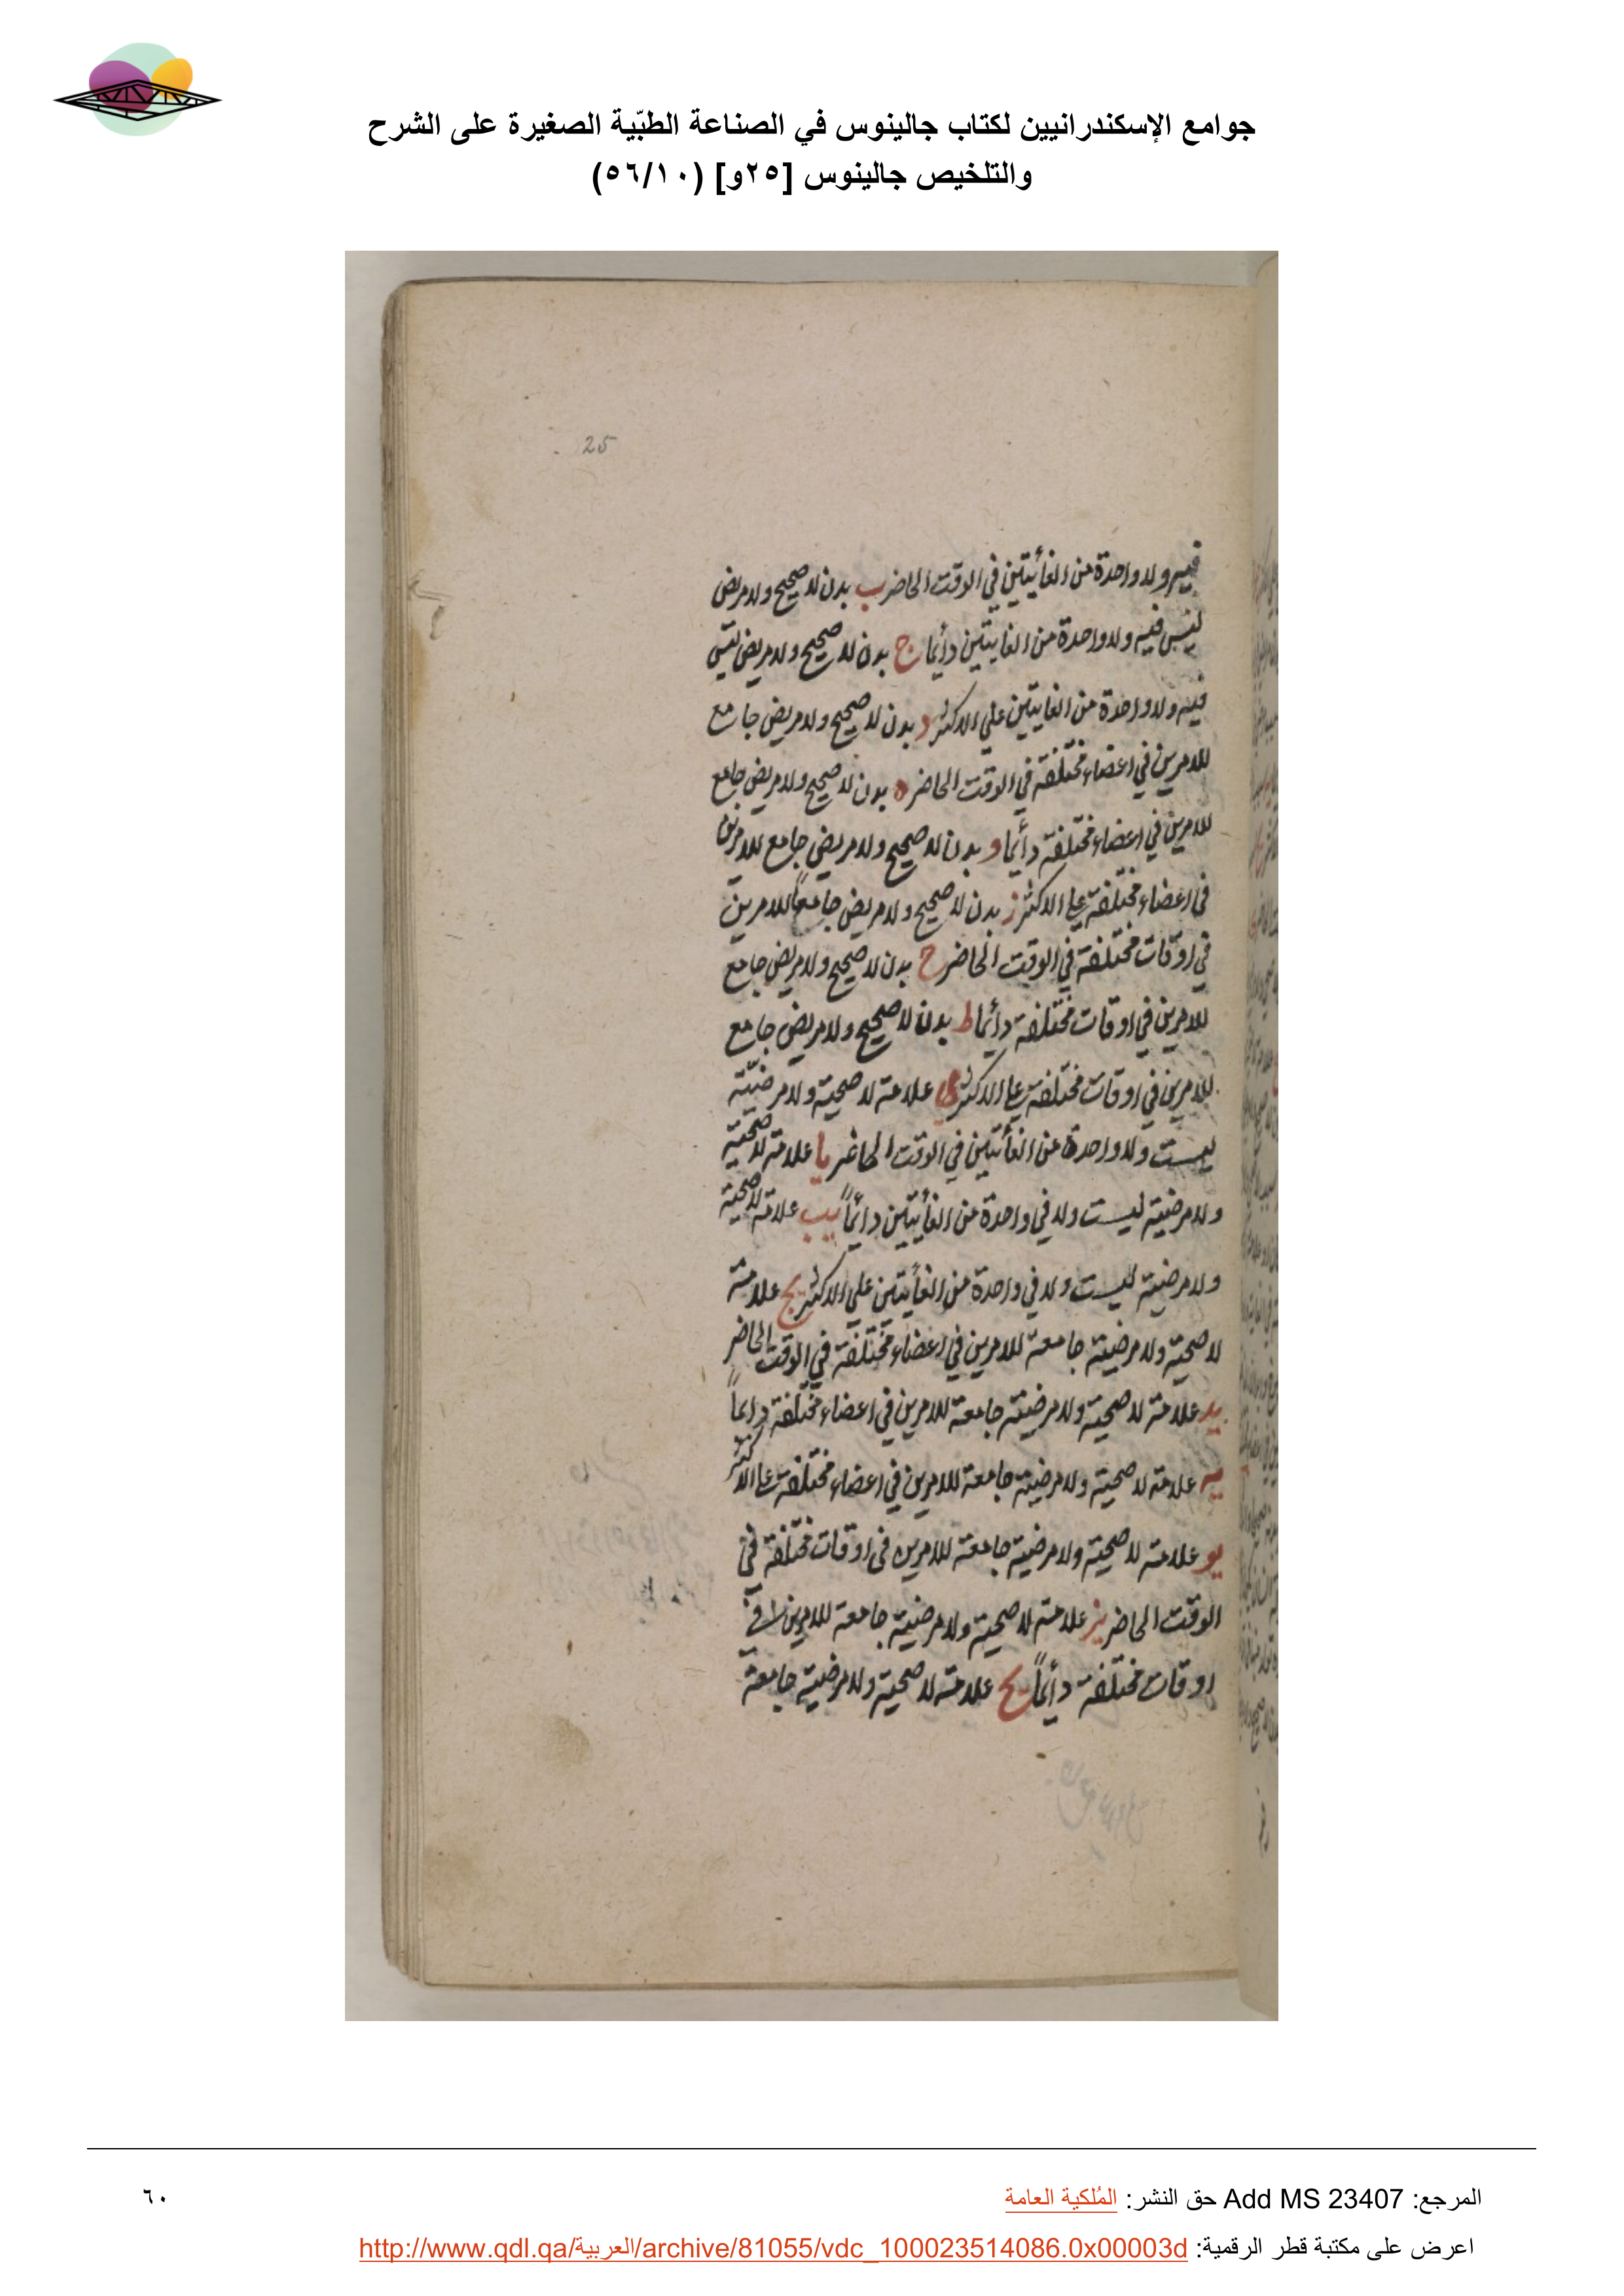 جوامع الإسكندرانيين لكتاب جالينوس في الصناعة الطبّية الصغيرة على الشرح
والتلخيص جالينوس [٢٥و] (٥٦/١٠)
25
فيه ولا واحدة من الغائيتين في الوقت الحاضر ب بدن لا صحيح ولا مريض
ليس فيه ولا واحدة من الغايتين دائما ج بدن لا صحيح ولا مريض ليس
فيه ولا واحدة من الغايتين علي الاكثر د بدن لا صحيح ولا مريض جامع
للامرين في اعضاء مختلفة في الوقت الحاضر ه بدن لا صحيح ولا مريض جامع
للامرين في اعضاء مختلفة دائما و بدن لا صحيح ولا مريض جامع للامرين
في اعضاء مختلفة علي الاكثر ز بدن لا صحيح ولا مريض جامعاً للامرين
في اوقات مختلفة في الوقت الحاضر ح بدن لا صحيح ولا مريض جامع
للامرين في اوقات مختلفة دائما ط بدن لا صحيح ولا مريض جامع
للامرين في اوقات مختلفة علي الاكثر ي علامة لا صحية ولا مرضية
ليست ولا واحدة من الغائيتين في الوقت الحاضر يا علامة لا صحية
ولا مرضية ليست ولا في واحدة من الغائيتين دائماً يب علامة لا صحية
ولا مرضية ليست ولا في واحدة من الغائيتين علي الاكثر يج علامة
لا صحية ولا مرضية جامعة للامرين في اعضاء مختلفة في الوقت الحاضر
يد علامة لا صحية ولا مرضية جامعة للامرين في اعضاء مختلفة دائماً
يه علامة لا صحية ولا مرضية جامعة للامرين في اعضاء مختلفة علي الاكثر
يو علامة لا صحية ولا مرضية جامعة للامرين في اوقات مختلفة في
الوقت الحاضر يز علامة لا صحية ولا مرضية جامعة للامرين في
اوقات مختلفة دائماً يح علامة لا صحية ولا مرضية جامعة
المرجع: Add MS 23407 حق النشر: المُلكية العامة
٦٠
اعرض على مكتبة قطر الرقمية: http://www.qdl.qa/العربية/archive/81055/vdc_100023514086.0x00003d